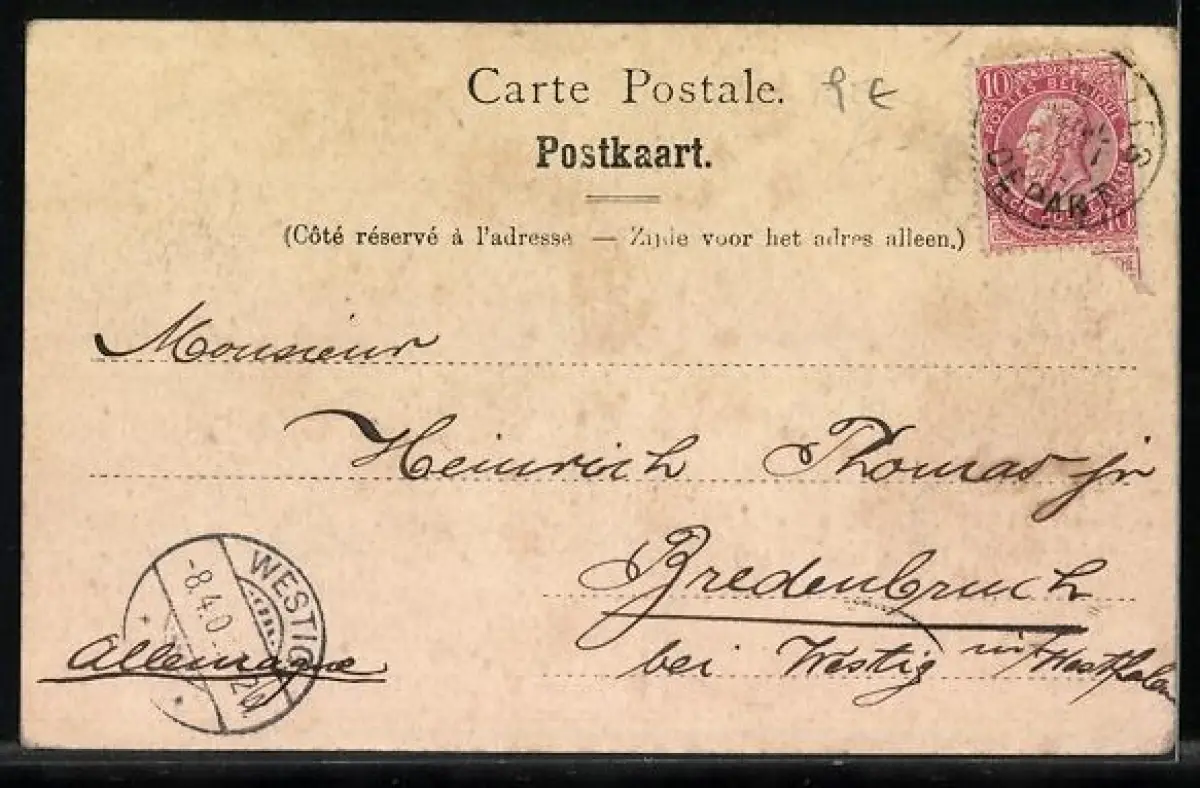 Carte Postale. 9 €
Postkaart.
(Côté réservé à l'adresse — Zijde voor het adres alleen.)
10
POSTES BELGIQUE
10
DEPART
Monsieur
Heinrich Thomas jr
Bredenbruch
bei Westig in Westfalen
Allemagne
WESTIG
-8.4.0